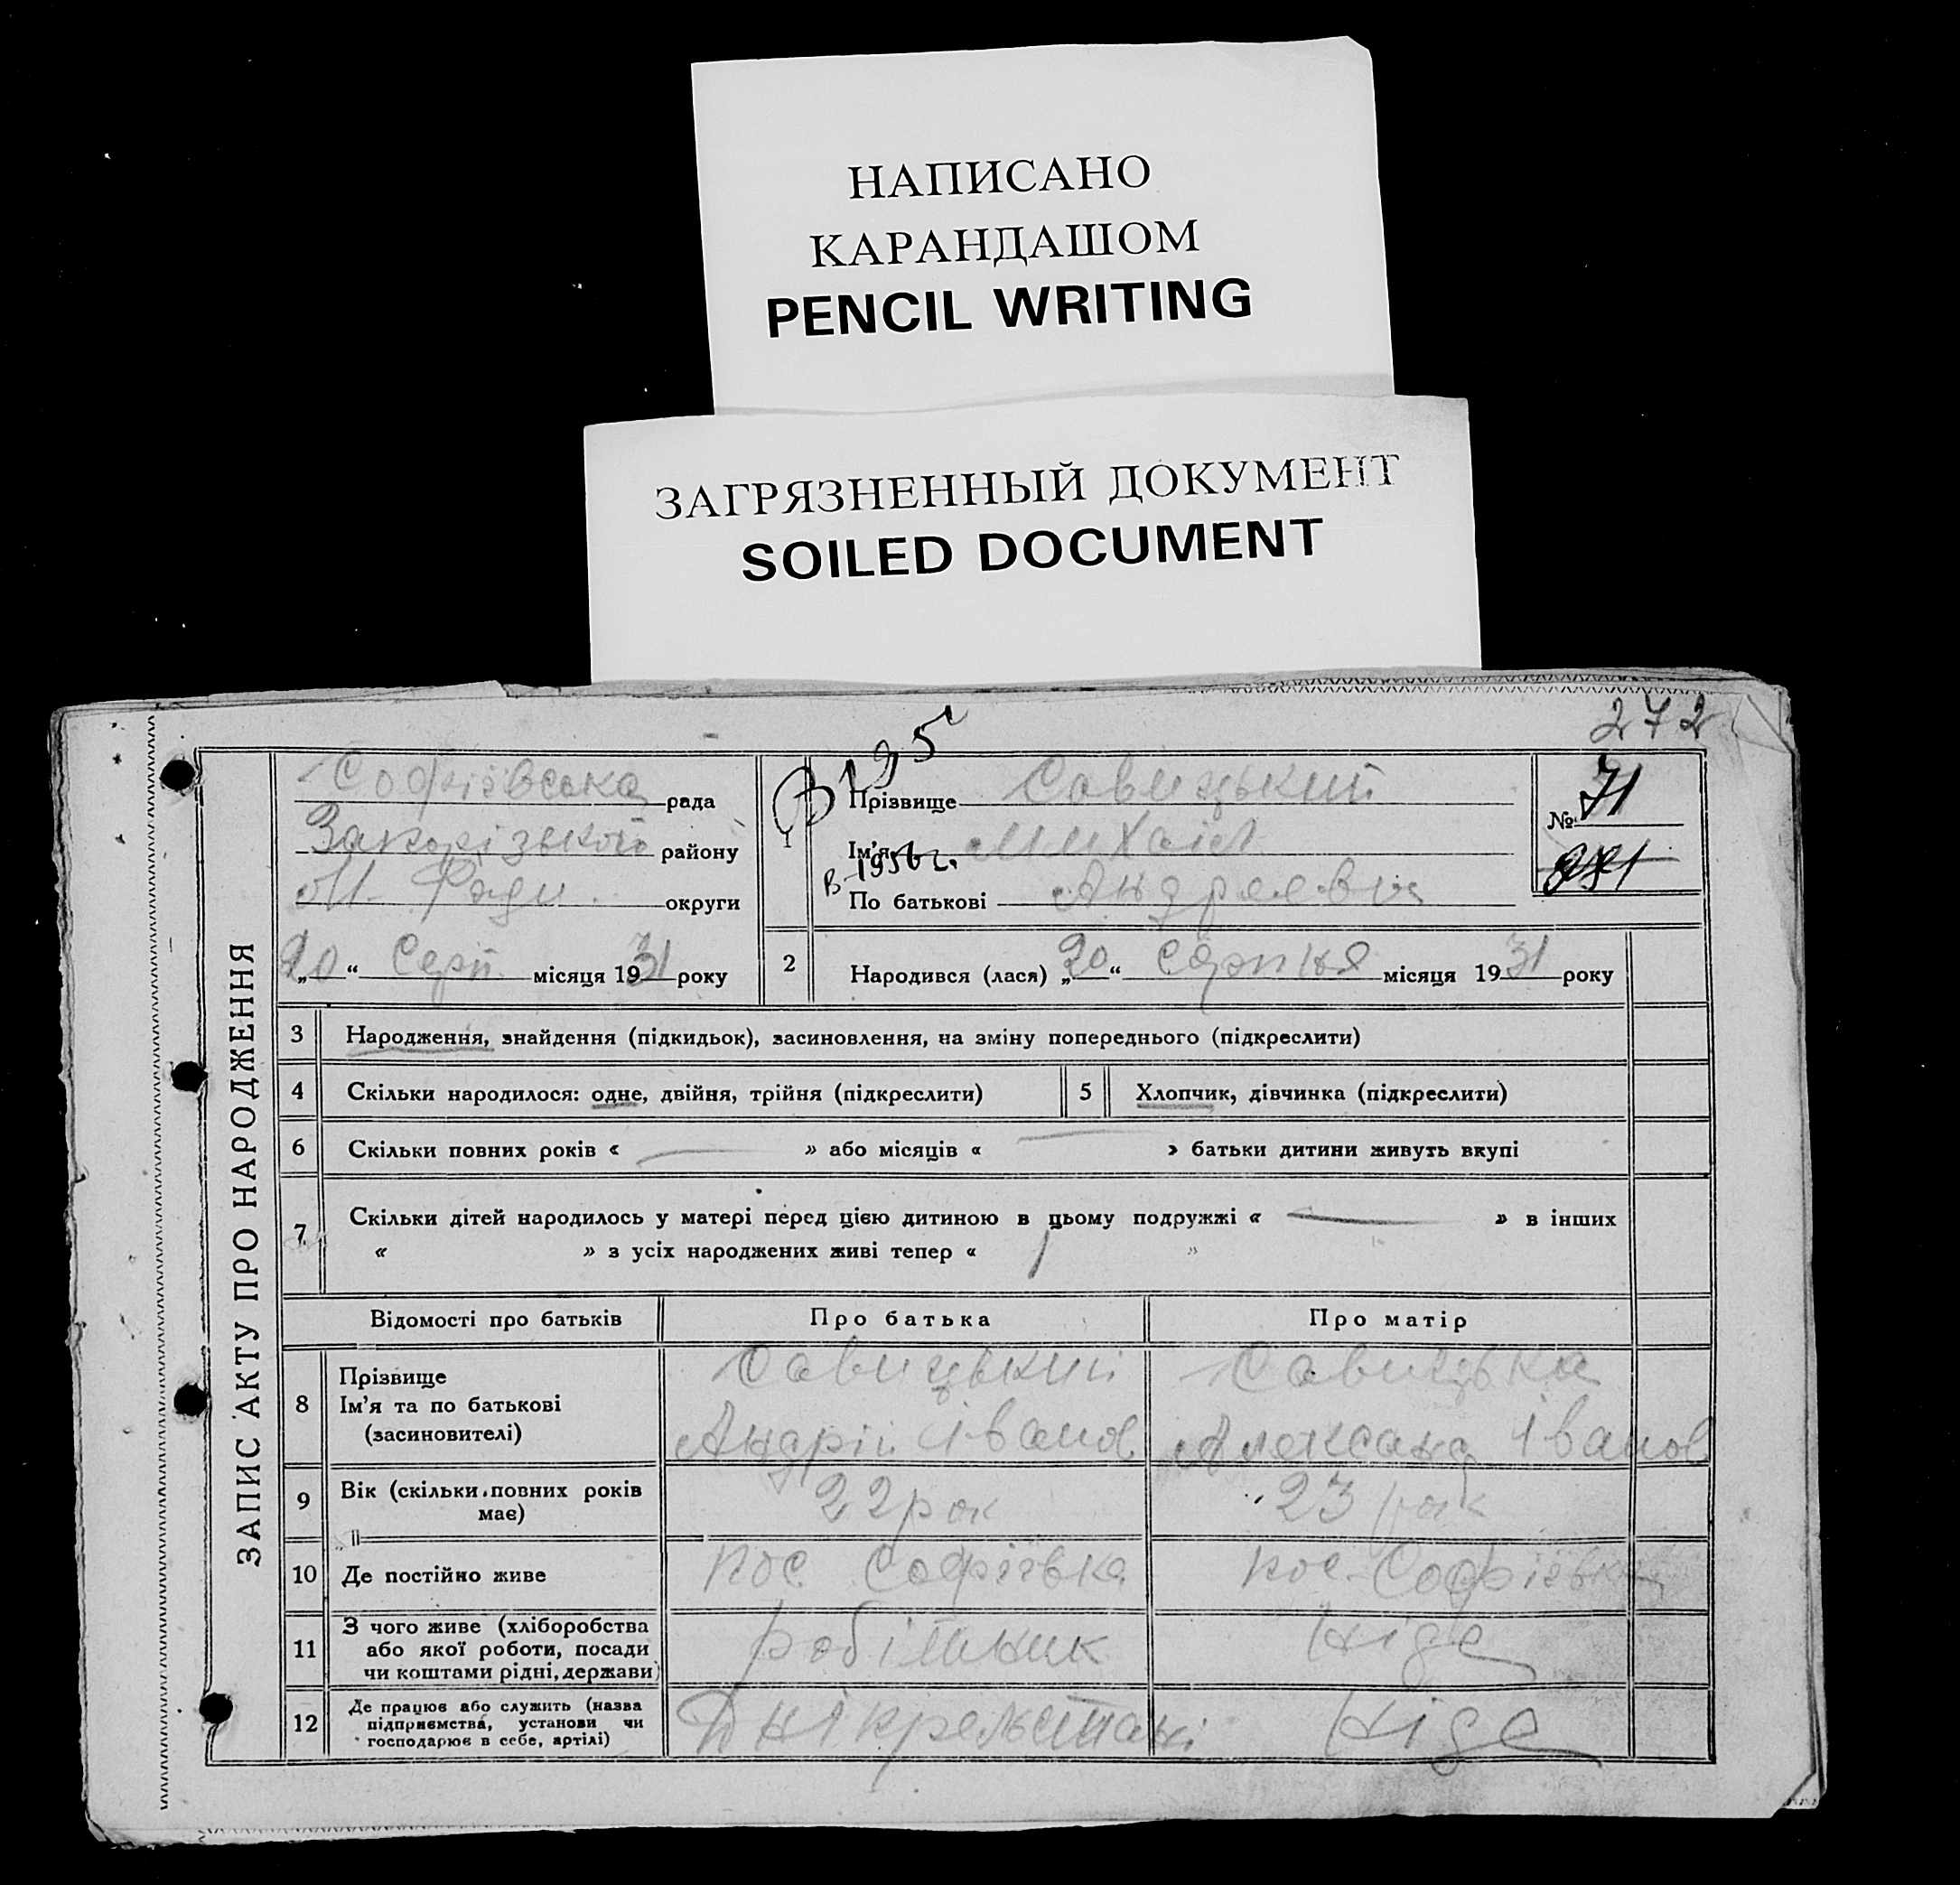 НАПИСАНО
КАРАНДАШОМ
PENCIL WRITING
ЗАГРЯЗНЕННЫЙ ДОКУМЕНТ
SOILED DOCUMENT
272
ЗАПИС АКТУ ПРО НАРОДЖЕННЯ
Софіївська рада
Запорізького району
округи
„20“ Серп. місяця 1931 року
1 Прізвище Савицький
Ім'я Михаіл
В 1956 г.
По батькові Андреевич
№ 71
2 Народився (лася) „20“ Серпня місяця 1931 року
3 Народження, знайдення (підкидьок), засиновлення, на зміну попереднього (підкреслити)
4 Скільки народилося: одне, двійня, трійня (підкреслити) 5 Хлопчик, дівчинка (підкреслити)
6 Скільки повних років « — » або місяців « — » батьки дитини живуть вкупі
7 Скільки дітей народилось у матері перед цією дитиною в цьому подружжі « — » в інших
« » з усіх народжених живі тепер « 1 »
Відомості про батьків Про батька Про матір
8 Прізвище Савицький Савицька
Ім'я та по батькові
(засиновителі) Андрій Іванов Алексана Іванов
9 Вік (скільки повних років
має) 22 рок 23 рок
10 Де постійно живе пос Софіївка пос. Софіївка
11 З чого живе (хліборобства
або якої роботи, посади
чи коштами рідні, держави) робітник Ніде
12 Де працює або служить (назва
підприємства, установи чи
господарює в себе, артілі) Ніде